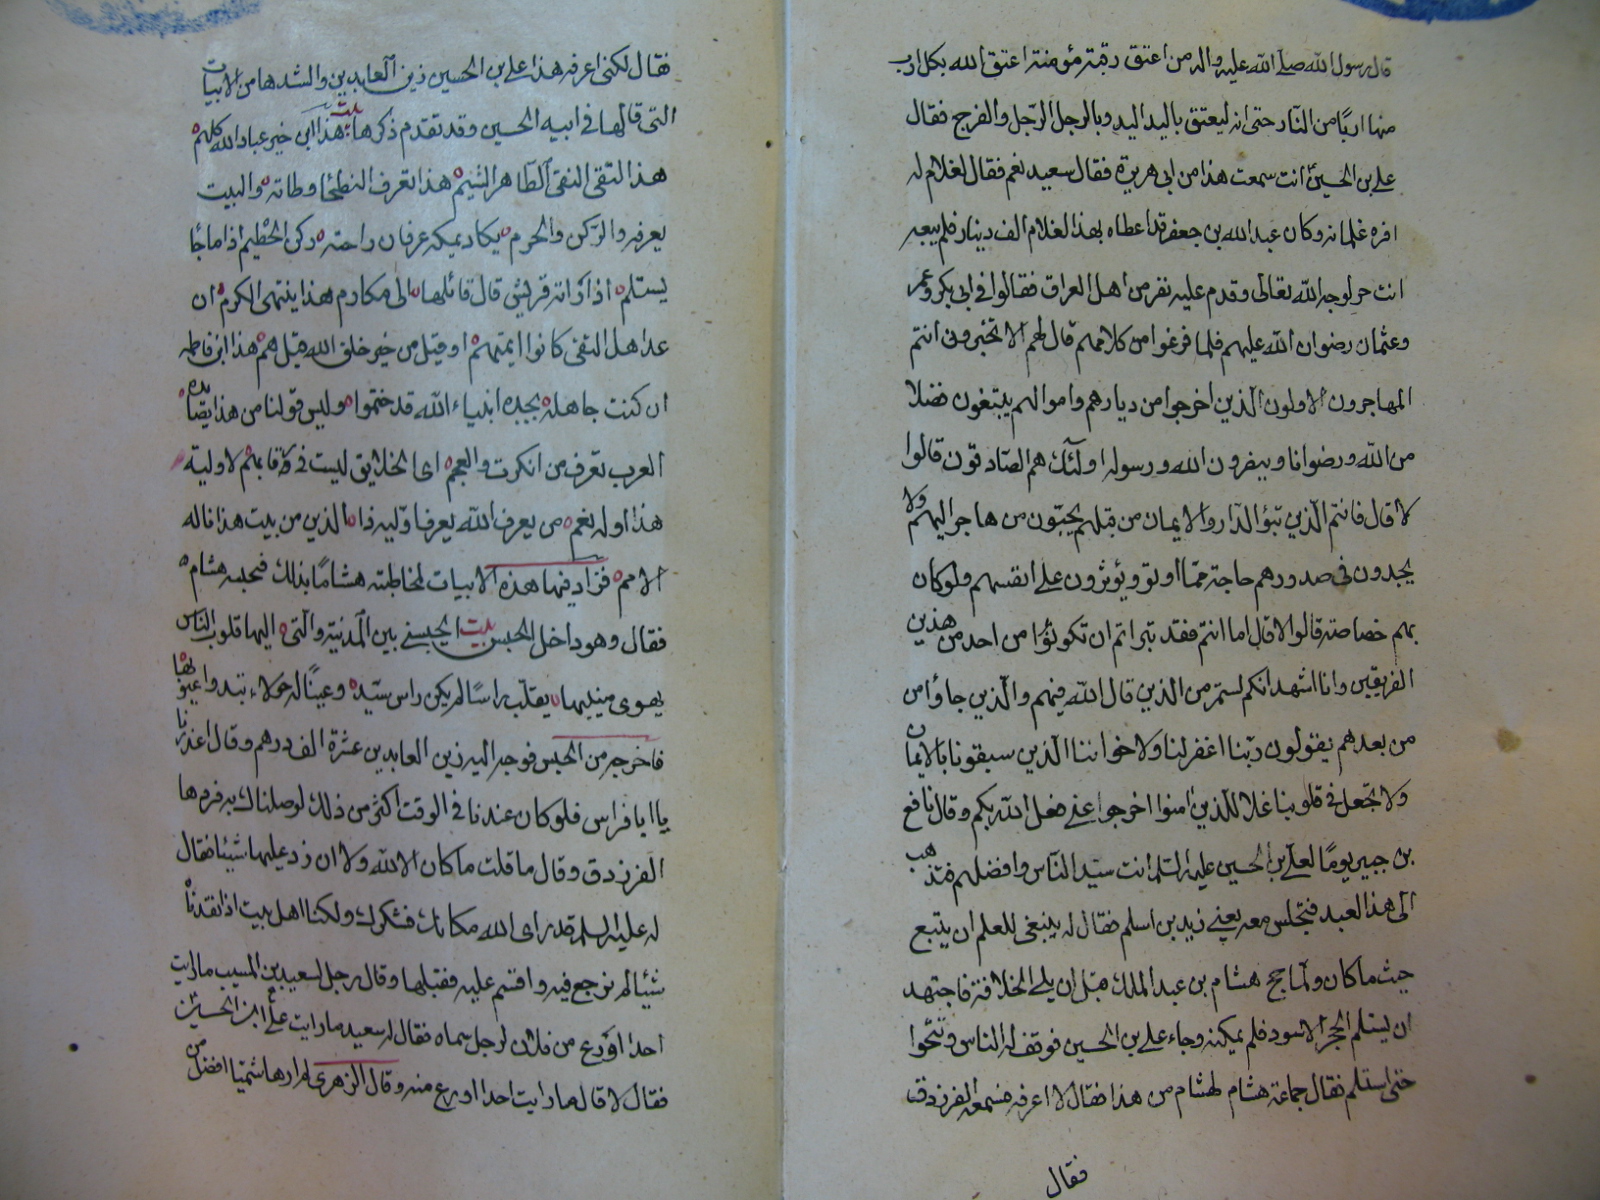 قال رسول الله صلى الله عليه واله من اعتق رقبة مؤمنة اعتق الله بكل ارب
منها اربًا من النار حتى انه ليعتق باليد اليد وبالرجل الرّجل والفرج فقال
علي بن الحسين انت سمعت هذا من ابي هريرة فقال سعيد نعم فقال لغلام له
افره غلمانه وكان عبد الله بن جعفر قد اعطاه بهذا الغلام الف دينار فلم يبعه
انت حر لوجه الله تعالى وقدم عليه نفر من اهل العراق فقالوا في ابي بكر وعمر
وعثمان رضوان الله عليهم فلما فرغوا من كلامهم قال لهم الا تخبروني انتم
المهاجرون الاولون الذين اخرجوا من ديارهم واموالهم يبتغون فضلا
من الله ورضوانا وينصرون الله ورسوله اولئك هم الصادقون قالوا
لا قال فانتم الذين تبؤ الدار والايمان من قبلهم يحبّون من هاجر اليهم ولا
يجدون في صدورهم حاجة ممّا اوتو ويؤثرون على انفسهم ولو كان
بهم خصاصة قالوا لا قال اما انتم فقد تبراتم ان تكونؤا من احد من هذين
الفريقين وانا اشهد انكم لستم من الذين قال الله فيهم والذين جاؤا من
من بعدهم يقولون ربّنا اغفر لنا ولاخواننا الذين سبقونا بالايمان
ولا تجعل في قلوبنا غلا للذين امنوا اخرجوا عني فعل الله بكم وقال نافع
بن جبير يومًا لعلي بن الحسين عليه السلم انت سيّد الناس وافضلهم فتذهب
الى هذا العبد فتجلس معه يعني زيد بن اسلم فقال له ينبغي للعلم ان يتبع
حيث ما كان ولما حج هشام بن عبد الملك قبل ان يلي الخلافة فاجتهد
ان يستلم الحجر الاسود فلم يمكنه وجاء علي بن الحسين فوقف له الناس وتنحّوا
حتى استلم فقال جماعة هشام لهشام من هذا فقال لا اعرفه فسمعه الفرزدق
فقال
فقال لكني اعرفه هذا علي بن الحسين زين العابدين وانشدها من الابيات
التي قالها في ابيه الحسين وقد تقدم ذكرها بيت هذا ابن خير عباد الله كلهم
هذا التقي النقي الطاهر الشيم هذا تعرف البطحا وطاته والبيت
يعرفه والركن والحرم يكاد يمسكه عرفان راحته ركن الحطيم اذا ما جا
يستلم اذا راته قريش قال قائلها الى مكارم هذا ينتهي الكرم ان
عد اهل التقى كانوا ايمتهم او قيل من خير خلق الله قيل هم هذا ابن فاطمه
ان كنت جاهله بجده انبياء الله قد ختموا وليس قولنا من هذا بضايره
العرب تعرف من انكرت والعجم اي الخلايق ليست في رقابهم لاوليه
هذا اوله نعم من يعرف الله يعرف اوّليه ذا الدين من بيت هذا ناله
الامم فزاد فيها هذه الابيات لمخاطبته هشامًا بذلك فحبسه هشام
فقال وهو داخل الحبس بيت ايحبسني بين المدينة والتي اليها قلوب الناس
يهوى منيبها يقلّب راسًا لم يكن راس سيّد وعينًا له حولاء تبدوا عيوبها
فاخرجه من الحبس فوجه اليه زين العابدين عشرة الف درهم وقال اعذرنا
يا ابا فراس فلو كان عندنا في الوقت اكثر من ذلك لوصلناك به فردها
الفرزدق وقال ما قلت ما كان الا لله ولا ان زد عليها شيئا فقال
له عليه السلم قد راى الله مكانك فشكرك ولكنا اهل بيت اذا نفدنا
شيئا لم نرجع فيه واقسم عليه فقبلها وقال رجل لسعيد بن المسيب ما رايت
احدا اورع من فلان لرجل سماه فقال له سعيد ما رايت علي بن الحسين
فقال لا قال ما رايت احدا اورع منه وقال الزهري لم ار هاشميًا افضل من